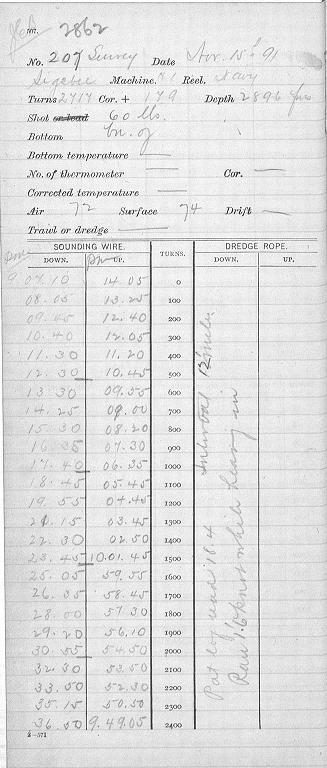 2862
No. 207 Survey Date Nov. 15th 91
Sigsbee Machine. #1 Reel. Navy
Turns 2717 Cor. + 179 Depth 2896 fms
Shot or lead 60 lbs.
Bottom br. oz
Bottom temperature —
No. of thermometer — Cor. —
Corrected temperature —
Air 72 Surface 74 Drift —
Trawl or dredge —
SOUNDING WIRE. TURNS. DREDGE ROPE.
DOWN. UP. DOWN. UP.
9 07.10 14.05 0
08.05 13.25 100
09.05 12.40 200
10.40 12.05 300
11.30 11.20 400
12.30 10.45 500
13.30 09.55 600
14.25 09.00 700
15.30 08.20 800
16.35 07.30 900
17.40 06.35 1000
18.45 05.45 1100
19.55 04.45 1200
21.15 03.45 1300
22.30 02.50 1400
23.45 10.01.45 1500
25.05 59.55 1600
26.35 58.45 1700
28.00 57.30 1800
29.20 56.10 1900
30.55 54.50 2000
32.30 53.50 2100
33.50 52.30 2200
35.15 50.50 2300
36.50 9.49.05 2400
Interval 12 miles
Pat log read 18.4
Ran 1.6 knot while heaving in
2—571